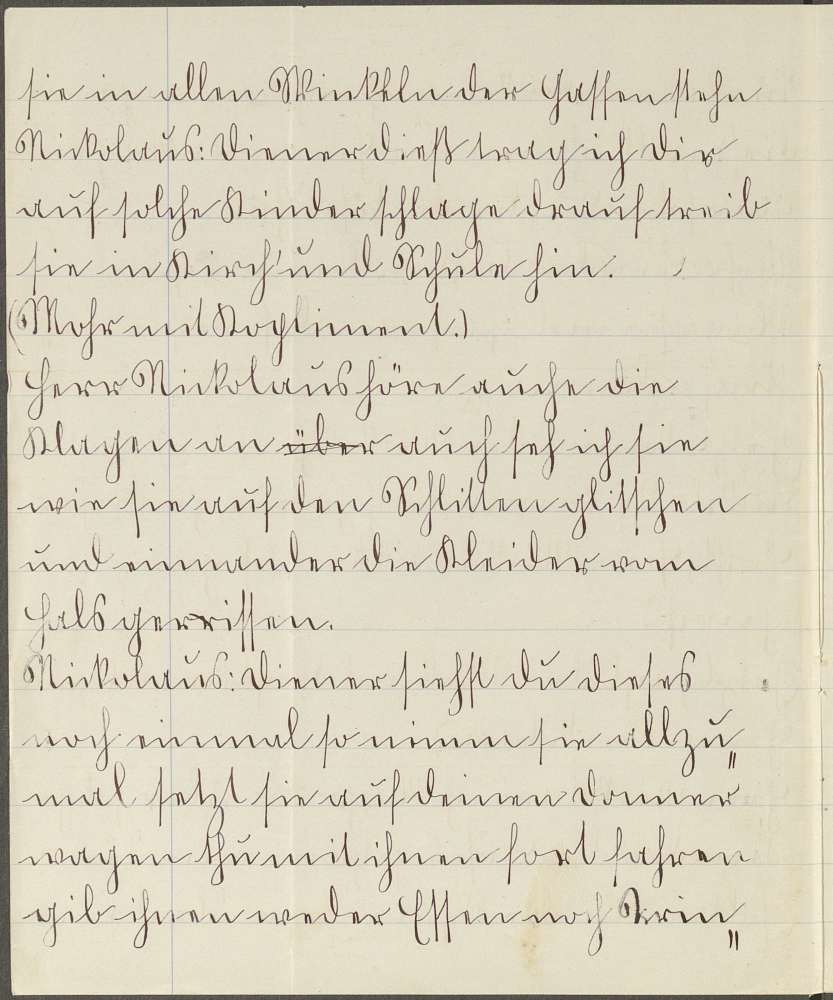 sie in allen Winkeln der Gassen stehn
Nickolaus: Diener dieß trag ich dir
auf solche Kinder schlage drauf treib
sie in Kirch' und Schule hin.
(Mohr mit Kopliment.)
Herr Nickolaus höre auche die
Klagen an über auch seh ich sie
wie sie auf den Schlitten glitschen
und einnander die Kleider vom
Hals gerrissen.
Nickolaus: Diener siehst du dieses
noch einmal so nimm sie allzu„
mal setzt sie auf deinen Donner
wagen thu mit ihnen fort fahren
gib ihnen weder Essen noch Trin„